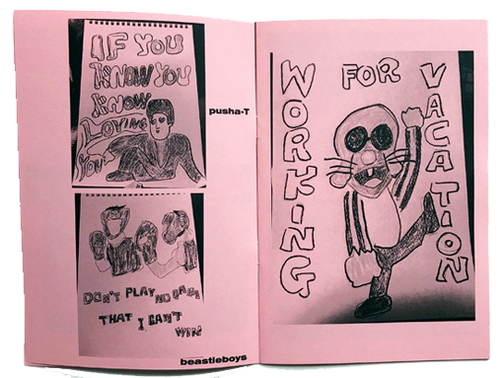 IF YOU
KNOW YOU
KNOW
LOVING
YOU
pusha-T
DON'T PLAY NO GAME
THAT I CAN'T
WIN
beastieboys
WORKING
FOR
VACATION